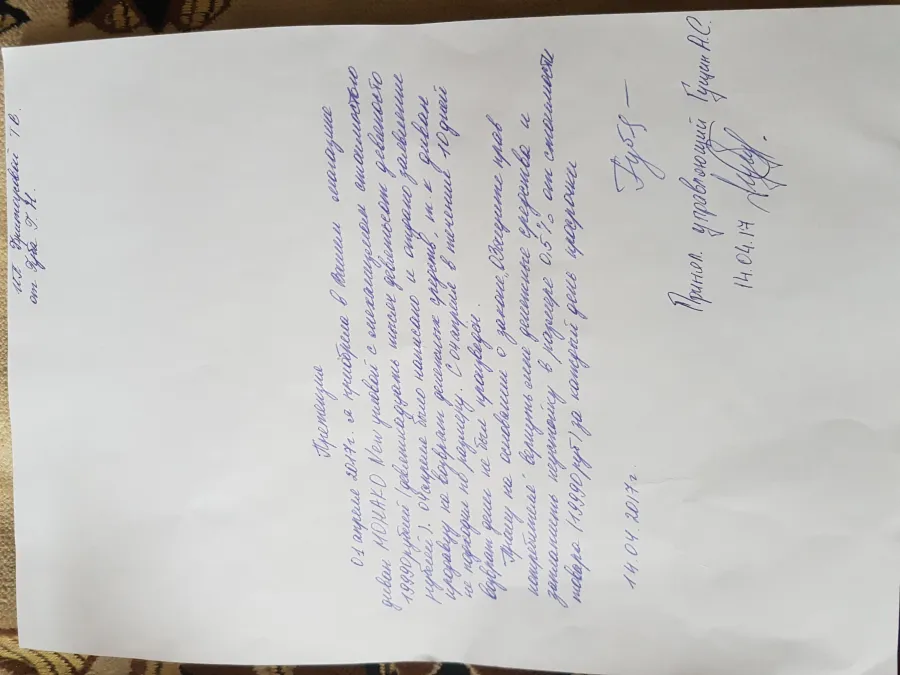 ИП Дмитриевой Т В.
от Губа Г. Н.
Претензия
01 апреля 2017г. я приобрела в Вашем магазине
диван МОНАКО New угловой с механизмом стоимостью
19990 рублей (девятнадцать тысяч девятьсот девяносто
рублей). 04 апреля было написано и отдано заявление
продавцу на возврат денежных средств, т.к диван
не подходил по размеру. С 04 апреля в течении 10 дней
возврат денег не был произведен.
Прошу на основании о законе „О защите прав
потребителя" вернуть мне денежные средства и
заплатить неустойку в размере 0.5% от стоимости
товара (19990 руб) за каждый день просрочки
14.04.2017г. Губа
Принял управляющий Гущин А.С.
14.04.17